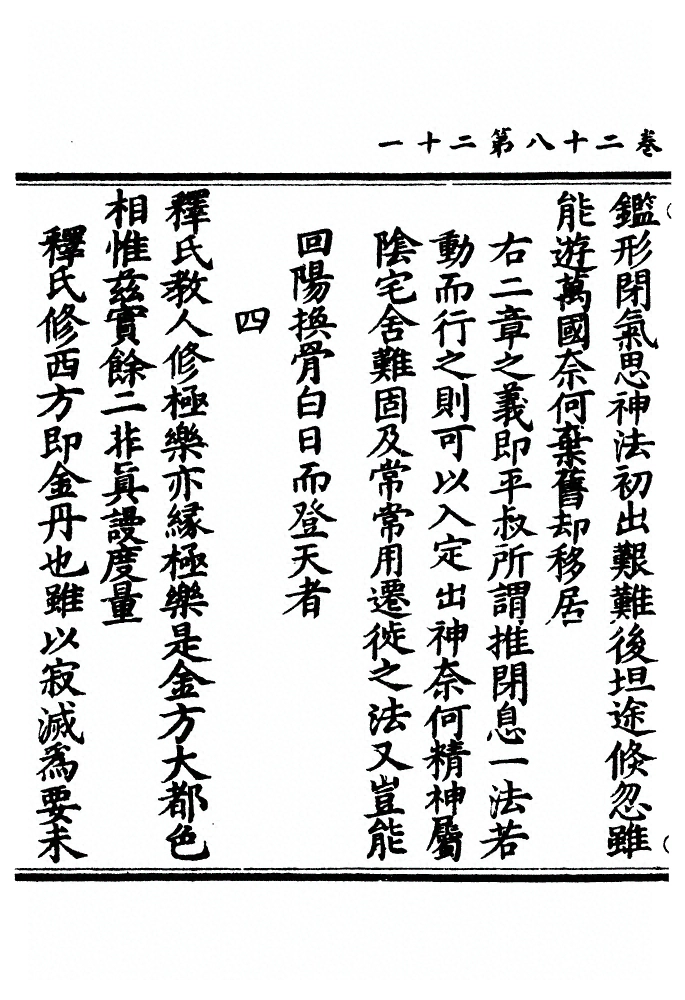 卷二十八第二十一
鑑形閉氣思神法初出艱難後坦途倐忽雖
能遊萬國奈何棄舊却移居
右二章之義即平叔所謂推閉息一法若
動而行之則可以入定出神奈何精神屬
陰宅舍難固及常常用遷徙之法又豈能
回陽換骨白日而登天者
四
釋氏教人修極樂亦緣極樂是金方大都色
相惟茲實餘二非眞謾度量
釋氏修西方即金丹也雖以寂滅爲要未